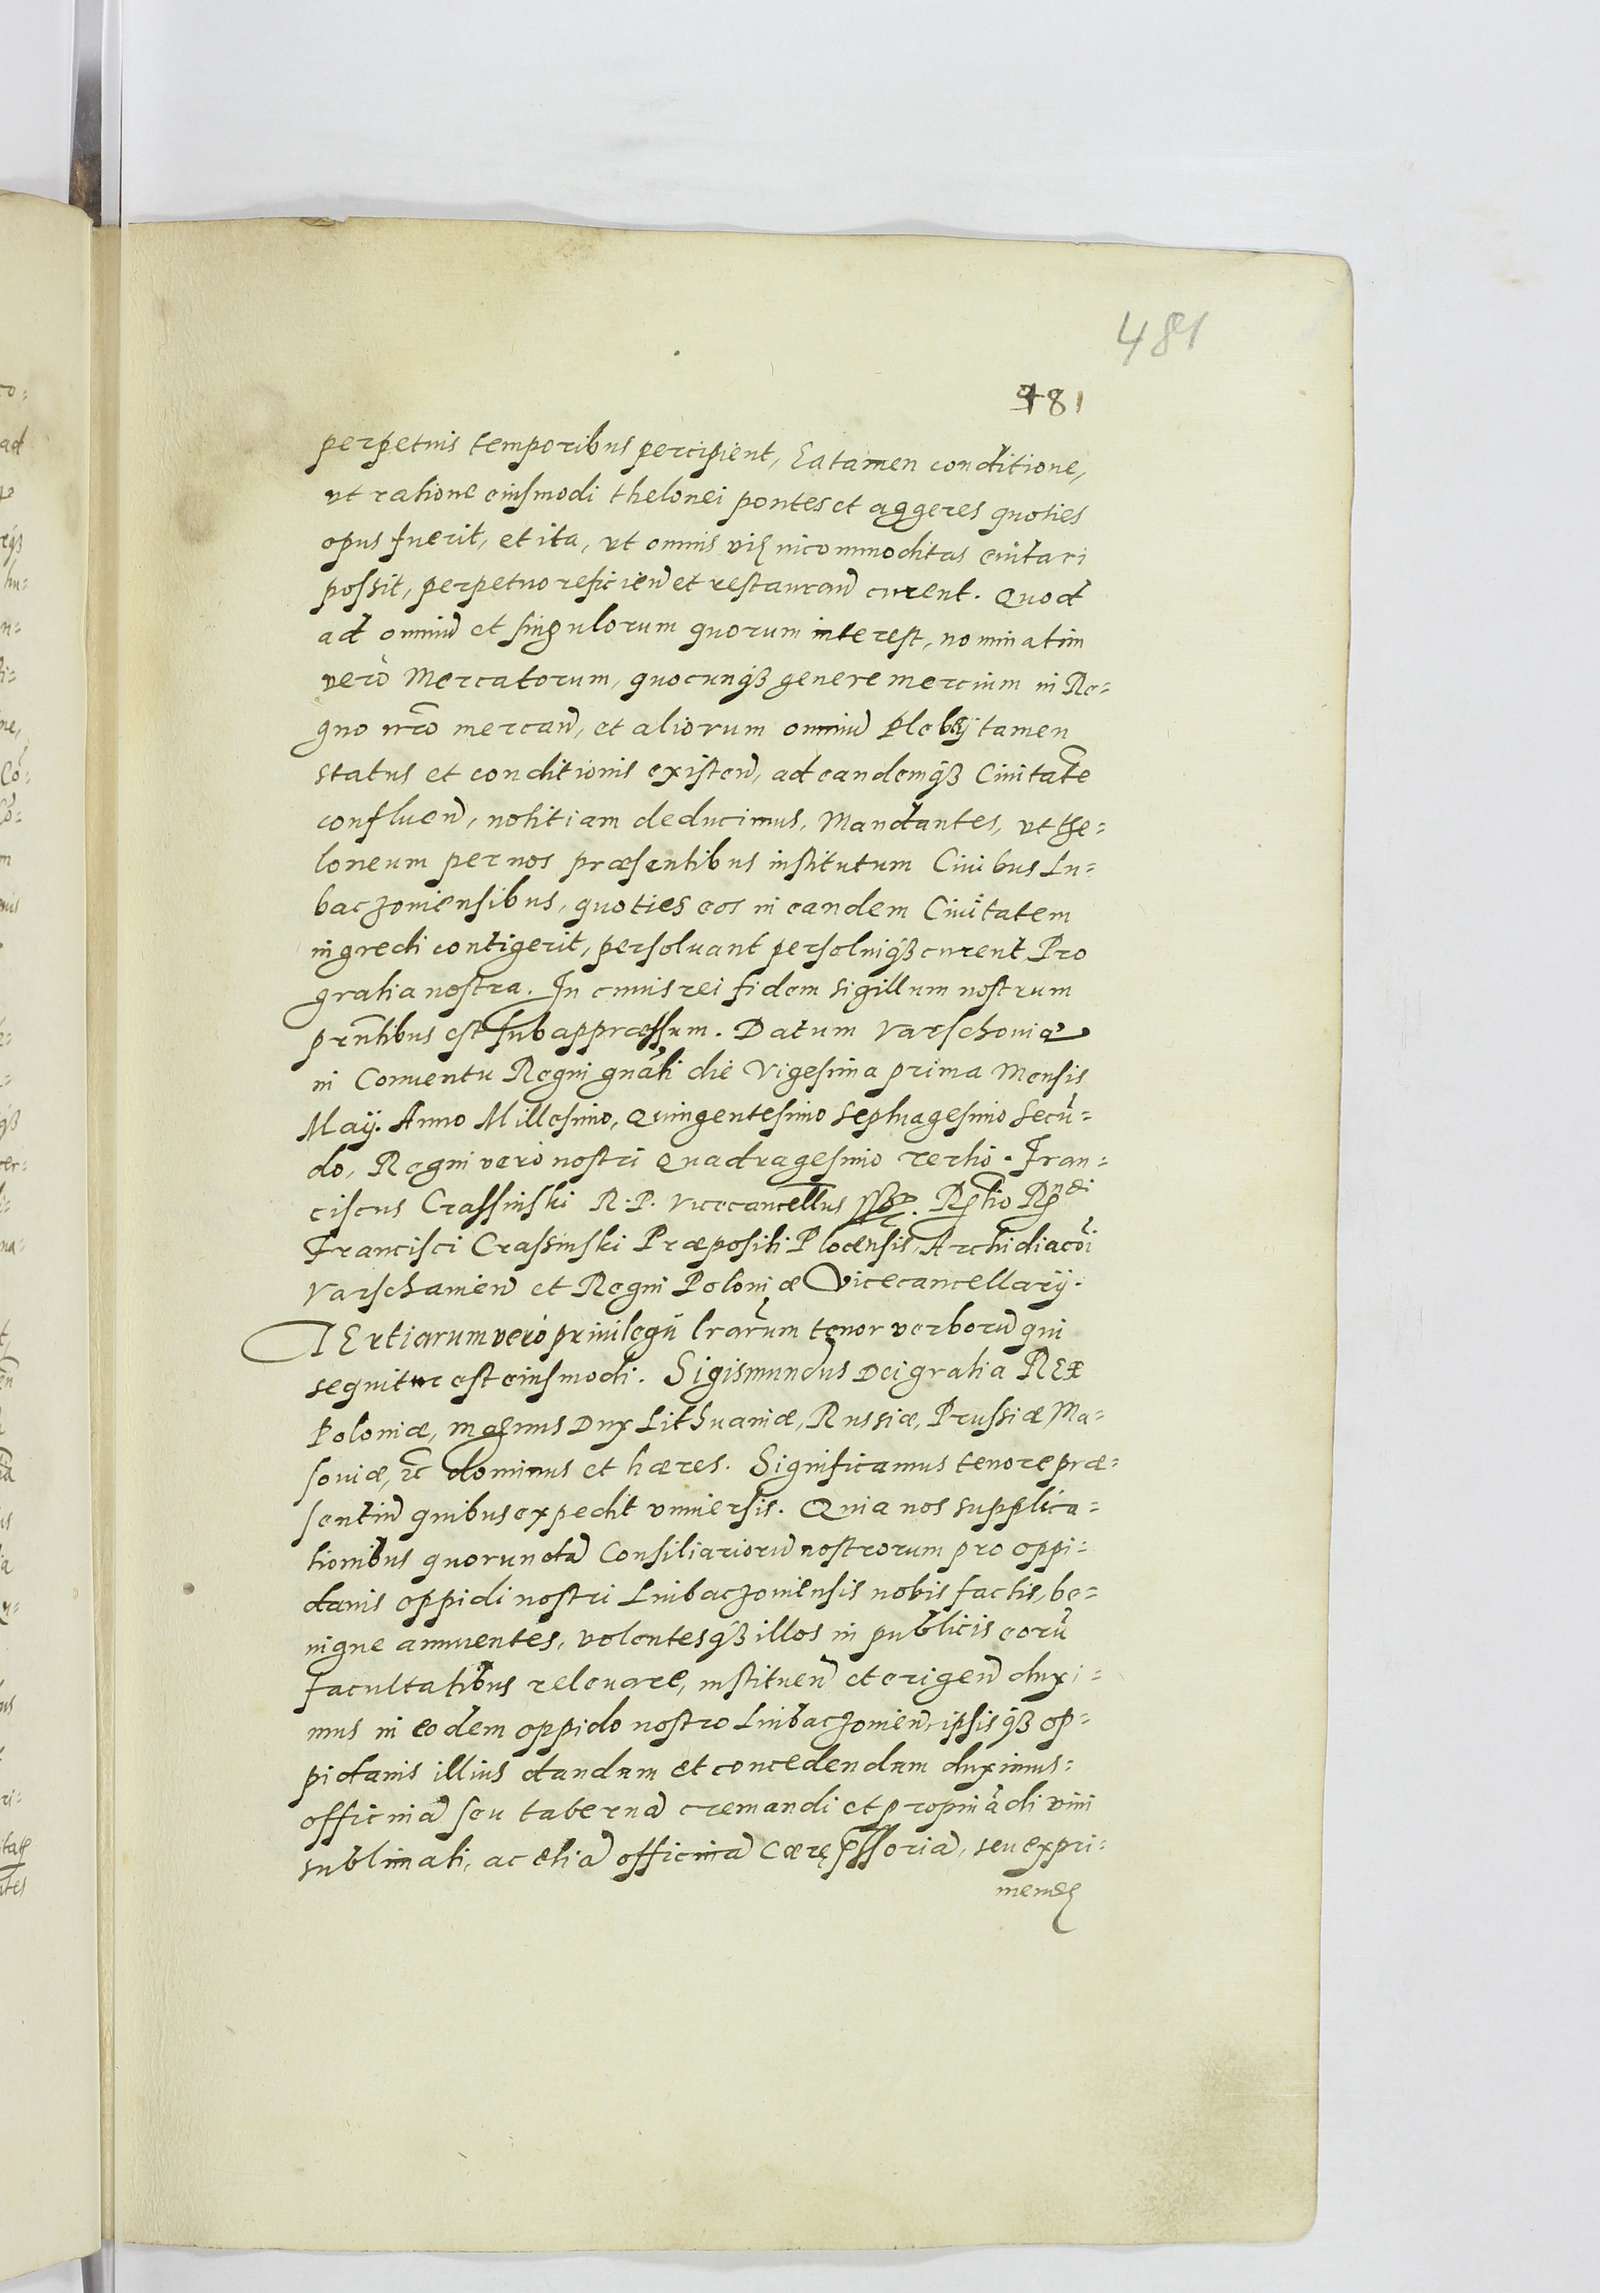 481
481
perpetuis temporibus percipient, Ea tamen conditione,
ut ratione eiusmodi thelonei pontes et aggeres quoties
opus fuerit, et ita, ut omnis vię incommoditas evitari
possit, perpetuo reficien̄ et restauran̄ curent. Quod
ad omniū et singulorum quorum interest, nominatim
verò Mercatorum, quocunqȝ genere mercium in Re=
gno nr̄o mercan̄, et aliorum omniū Plebeij tamen
status et conditionis existen̄, ad eandemqȝ Civitatē
confluen̄, notitiam deducimus, Mandantes, ut the=
loneum per nos præsentibus institutum Civibus Lu=
baczoviensibus, quoties eos in eandem Civitatem
ingredi contigerit, persolvant persolviqȝ curent, Pro
gratia nostra. In cuius rei fidem sigillum nostrum
prn̄tibus est subappræssum. Datum Varschoviæ
in Conventu Regni gnāli die Vigesima prima Mensis
Maij. Anno Millesimo, Quingentesimo Septuagesimo Secū=
do, Regni verò nostri Quadragesimo Tertio. Fran=
ciscus Crassinski R. P. Vicecancellus sspt. Rltio Rndi
Francisci Crassinski Præpositi Plocensis, Archidiacōi
Varschavien̄ et Regni Poloniæ Vicecancellarij.
TErtiarum verò privilegii lrārum tenor verborū qui
sequitur est eiusmodi. Sigismundus Dei gratia REX
Poloniæ, magnus Dux Lithuaniæ, Russiæ, Prussiæ Ma=
soviæ, ēc dominus et hæres. Significamus tenore præ=
sentiū quibus expedit universis. Quia nos supplica=
tionibus quorundā Consiliariorū nostrorum pro oppi=
danis oppidi nostri Lubaczoviensis nobis factis, be=
nigne annuentes, volentesqȝ illos in publicis eorū
facultatibus relevare, instituen̄ et erigen̄ duxi=
mus in eodem oppido nostro Lubaczovien̄, ipsisqȝ op=
pidanis illius dandum et concedendum duximus=
officinā seu tabernā cremandi et propināndi vini
sublimati, ac etiā officinā Ceræ pssoriā, seu expri=
mendę